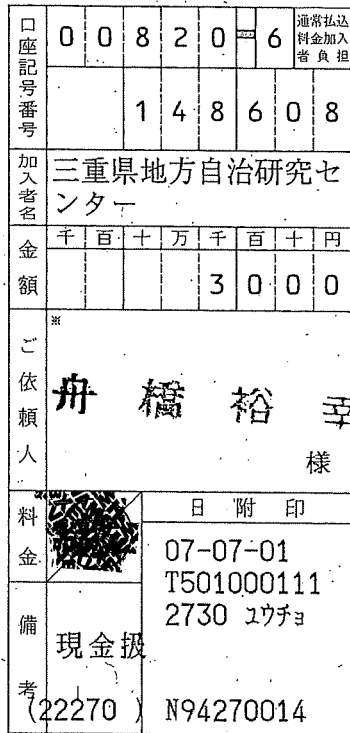 口座記号番号
00820=6
通常払込料金加入者負担
148608
加入者名
三重県地方自治研究セ
ンター
金額
千百十万千百十円
3000
ご依頼人
※
舟橋裕幸
様
料金
日附印
07-07-01
T501000111
2730 ユウチョ
備考
現金扱
(22270 ) N94270014